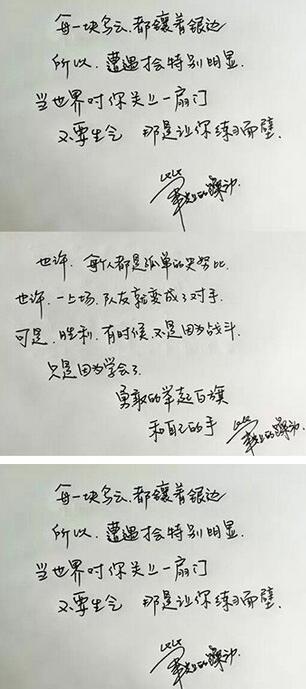 每一块乌云.都镶着银边
所以.遭遇才会特别明显.
当世界对你关上一扇门
不要生气 那是让你练习面壁.
笔尖上的躁动
也许.每个人都是孤单的史努比.
也许.一上场.队友就变成了对手.
可是.胜利.有时候.不是因为战斗.
只是因为学会了.
勇敢的举起白旗
和自己的手
笔尖上的躁动
每一块乌云.都镶着银边
所以.遭遇才会特别明显.
当世界对你关上一扇门
不要生气 那是让你练习面壁.
笔尖上的躁动